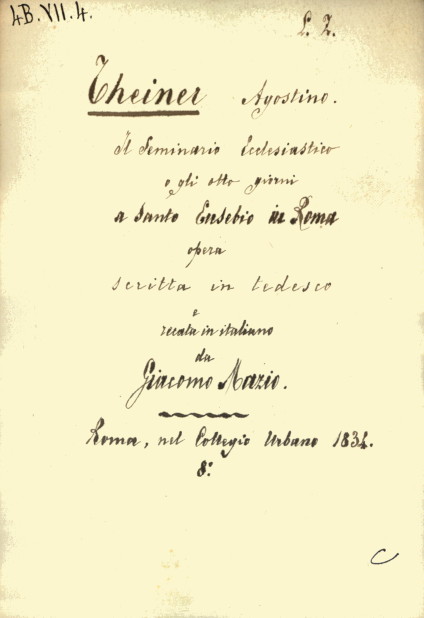 4B.VII.4.
L. Z.
Theiner Agostino.
Il Seminario Ecclesiastico
o gli otto giorni
a Santo Eusebio in Roma
opera
scritta in tedesco
e
recata in italiano
da
Giacomo Mazio.
Roma, nel Collegio Urbano 1834.
8°.
C